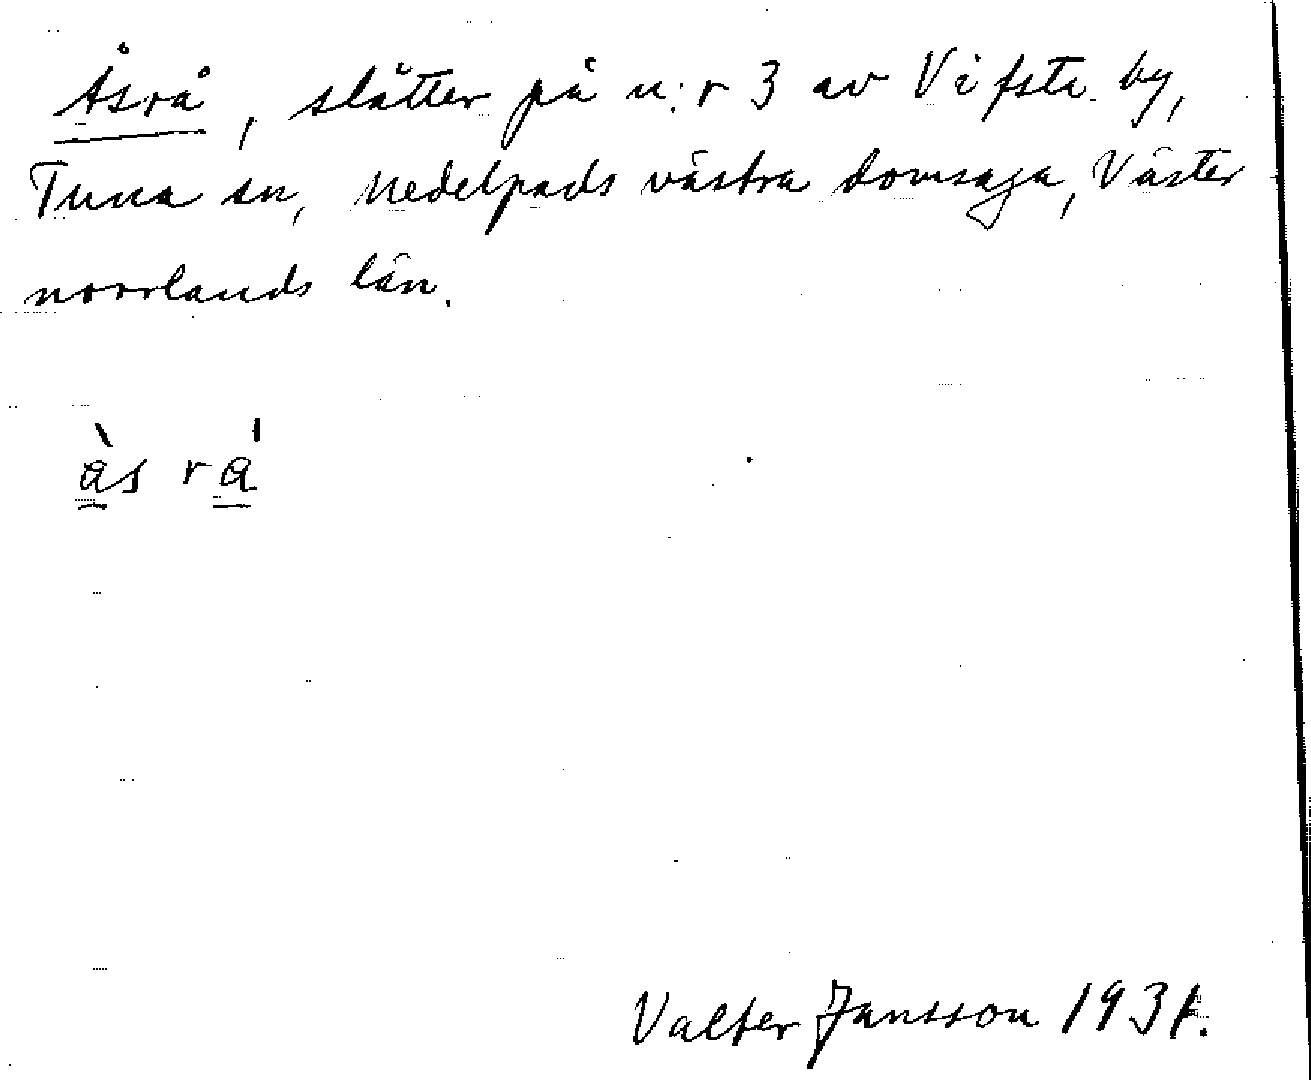 Åsrå, slåtter på n:r 3 av Vifsta by,
Tuna sn, Medelpads västra domsaga, Väster
norrlands län.
ås rå
Valter Jansson 1931.